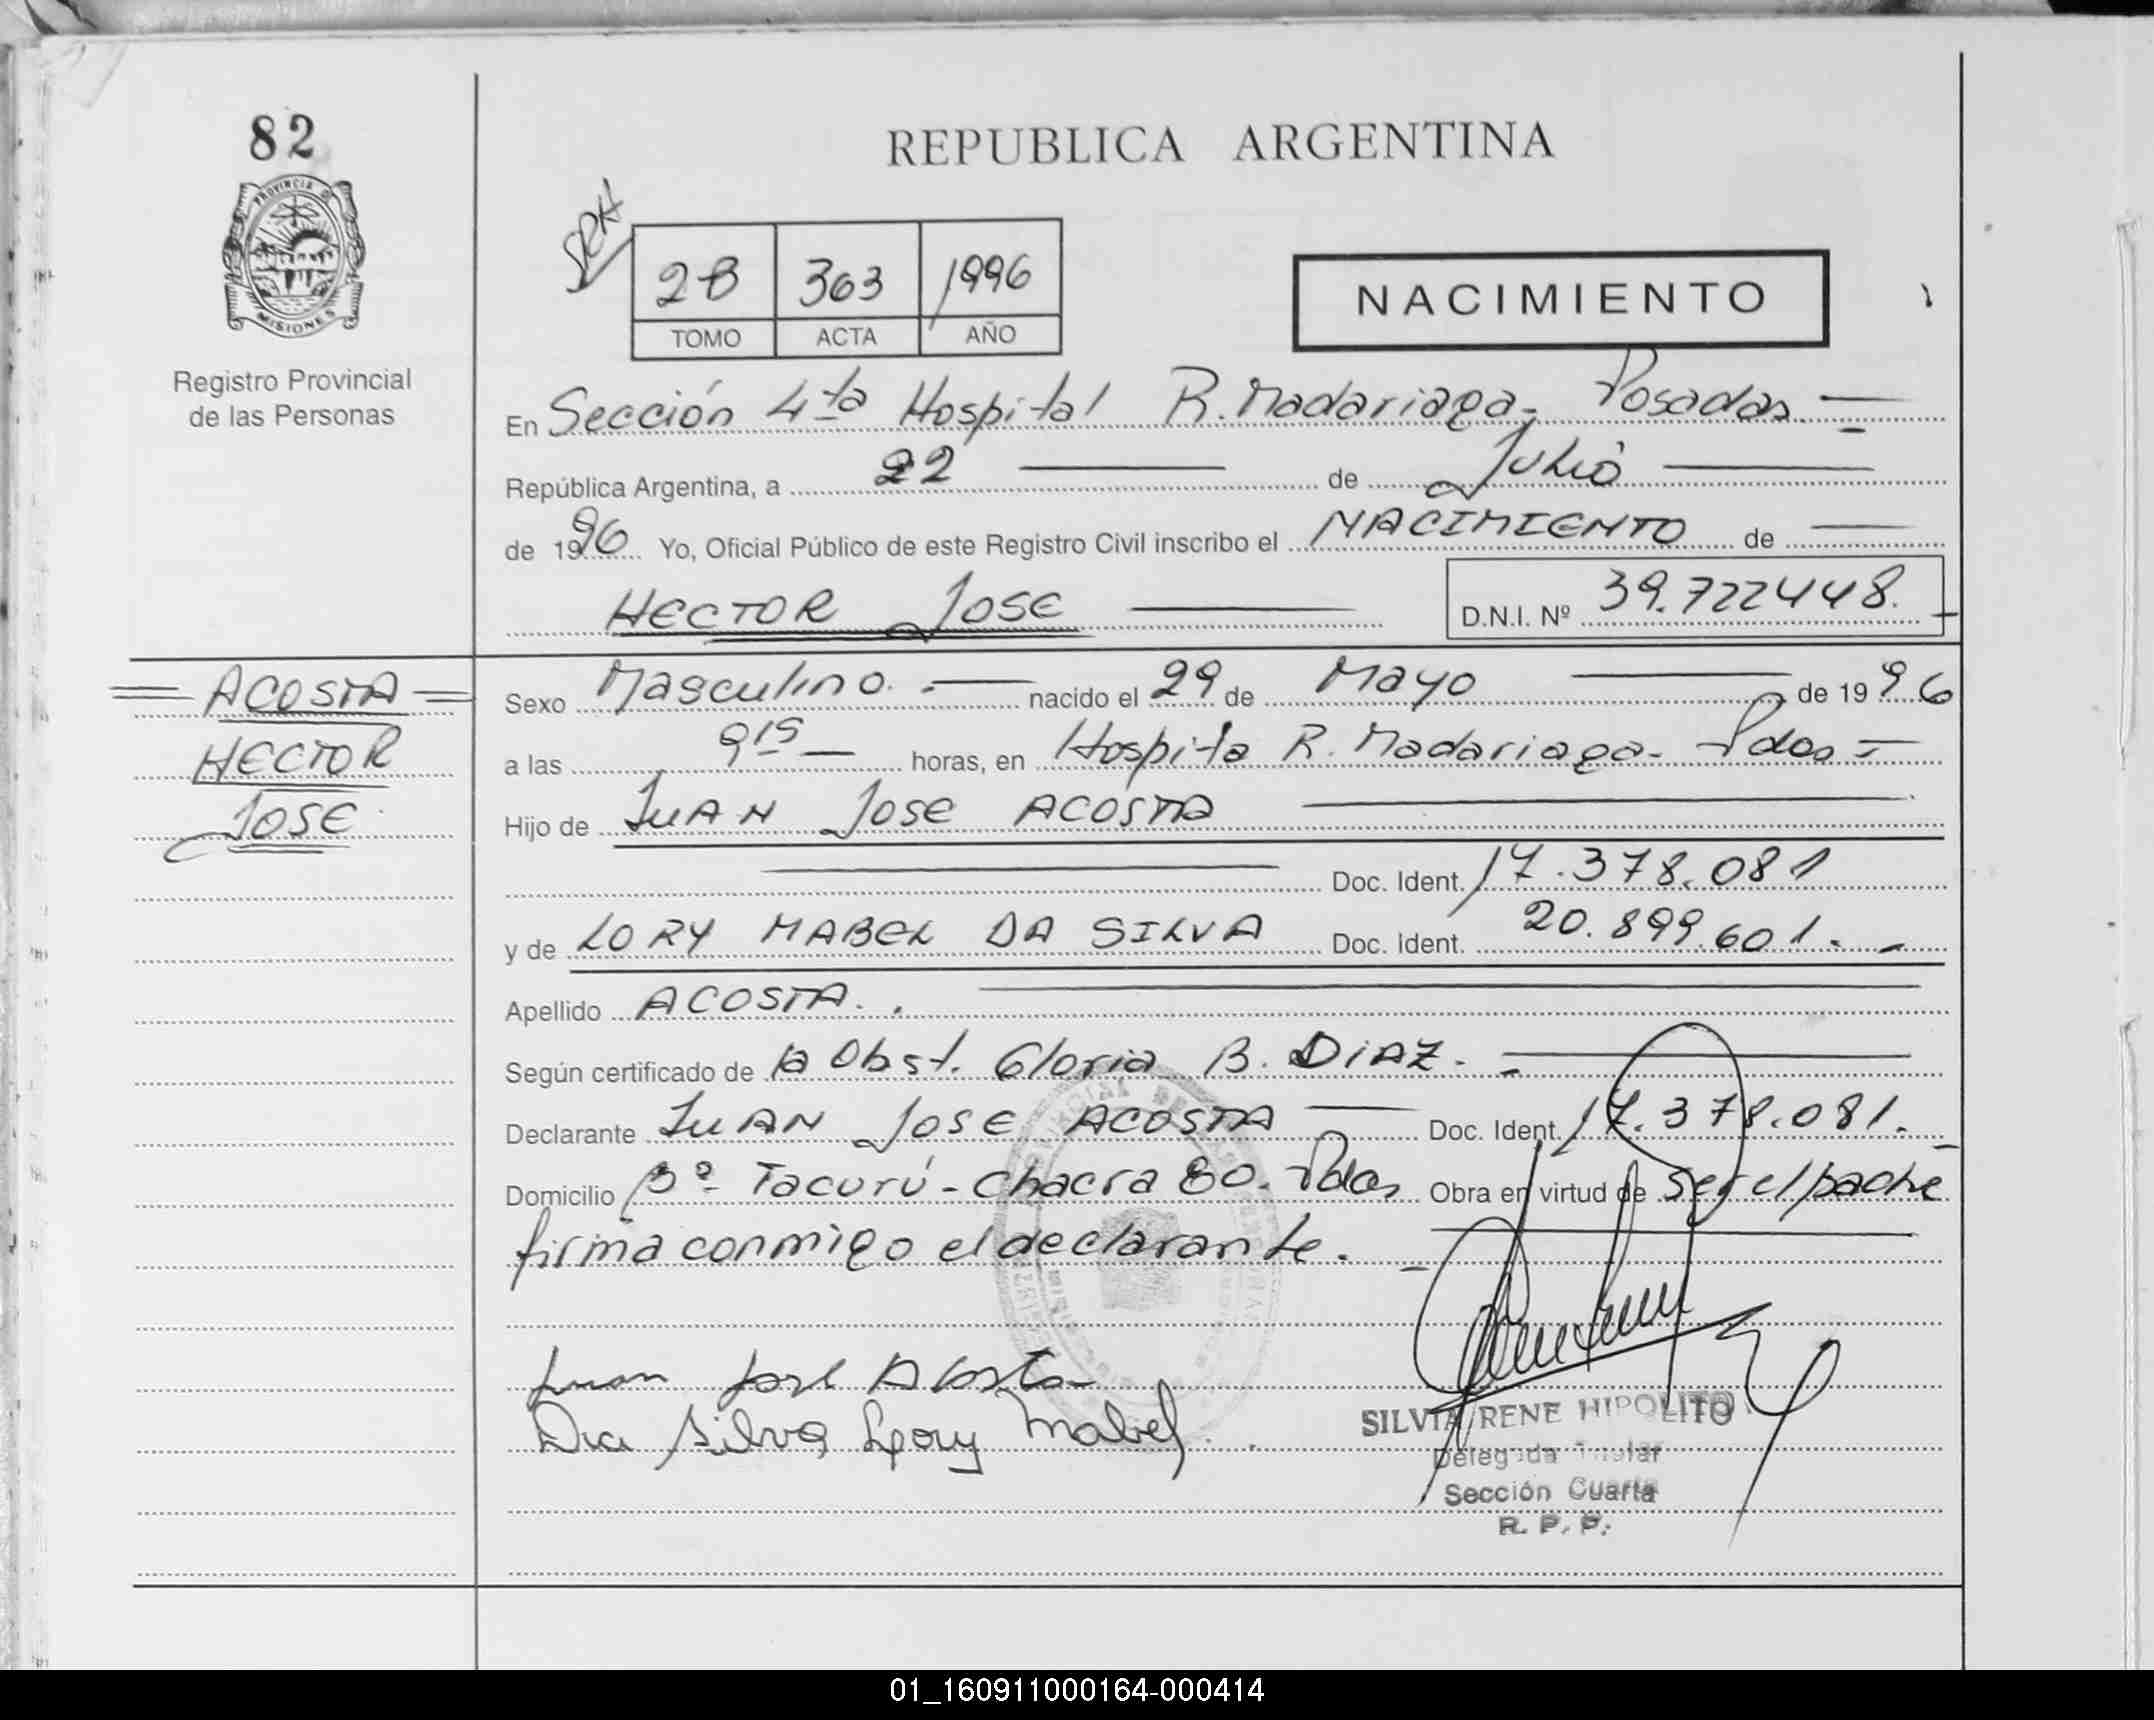 82
PROVINCIA DE
MISIONES
Registro Provincial
de las Personas
REPUBLICA ARGENTINA
2B 363 1996
TOMO ACTA AÑO
NACIMIENTO
En Sección 4ta Hospital R. Madariaga - Posadas. —
República Argentina, a 22 — de Julio —
de 1996 Yo, Oficial Público de este Registro Civil inscribo el NACIMIENTO de —
HECTOR JOSE — D.N.I. Nº 39.722448. -
= ACOSTA =
HECTOR
JOSE
Sexo Masculino. — nacido el 29 de Mayo — de 1996
a las 9 15 — horas, en Hospita R. Madariaga - Pdas =
Hijo de JUAN JOSE ACOSTA —
— Doc. Ident. 17.378.081
y de LORY MABEL DA SILVA Doc. Ident. 20.899.601. -
Apellido ACOSTA. . —
Según certificado de la Obst. Gloria B. DIAZ. - —
Declarante JUAN JOSE ACOSTA — Doc. Ident. 17.378.081. -
Domicilio Bº Tacurú - Chacra 80. Pdas Obra en virtud de ser el padre
firma conmigo el declarante. -
Juan José Acosta
Da Silva Lory Mabel
SILVIA RENE HIPOLITO
Delegada Titular
Sección Cuarta
R. P. P.
01_160911000164-000414